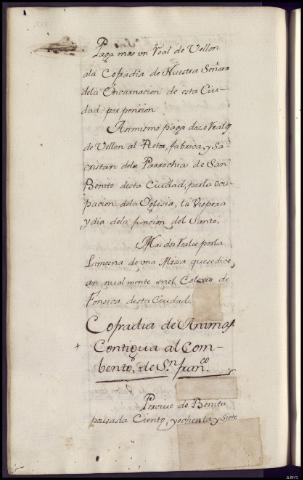 Paga mas un Real de Vellon
ala Cofradia de Nuestra Señora
dela Encarnacion de esta Ciu-
dad por pension
Asimismo paga doze Reales
de Vellon al Retor, fabrica, y Sa-
cristan dela Parrochia de San
Benito desta Ciudad, porla ocu-
pacion dela Iglesia, la Vispera
y dia dela funcion del Santo.
Mas dos Reales porla
Limosna de una Missa que se dice
anualmente en el Colexio de
Fonseca desta Ciudad.
Cofradia de Animas
+ Contigua al Com-
bento, de Sn. Franco.
Percive de Renta
paisada Ciento, y ochenta y siete